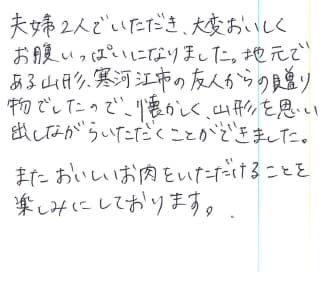 夫婦2人でいただき、大変おいしく
お腹いっぱいになりました。地元で
ある山形、寒河江市の友人からの贈り
物でしたので、懐かしく、山形を思い
出しながらいただくことができました。
またおいしいお肉をいただけることを
楽しみにしております。